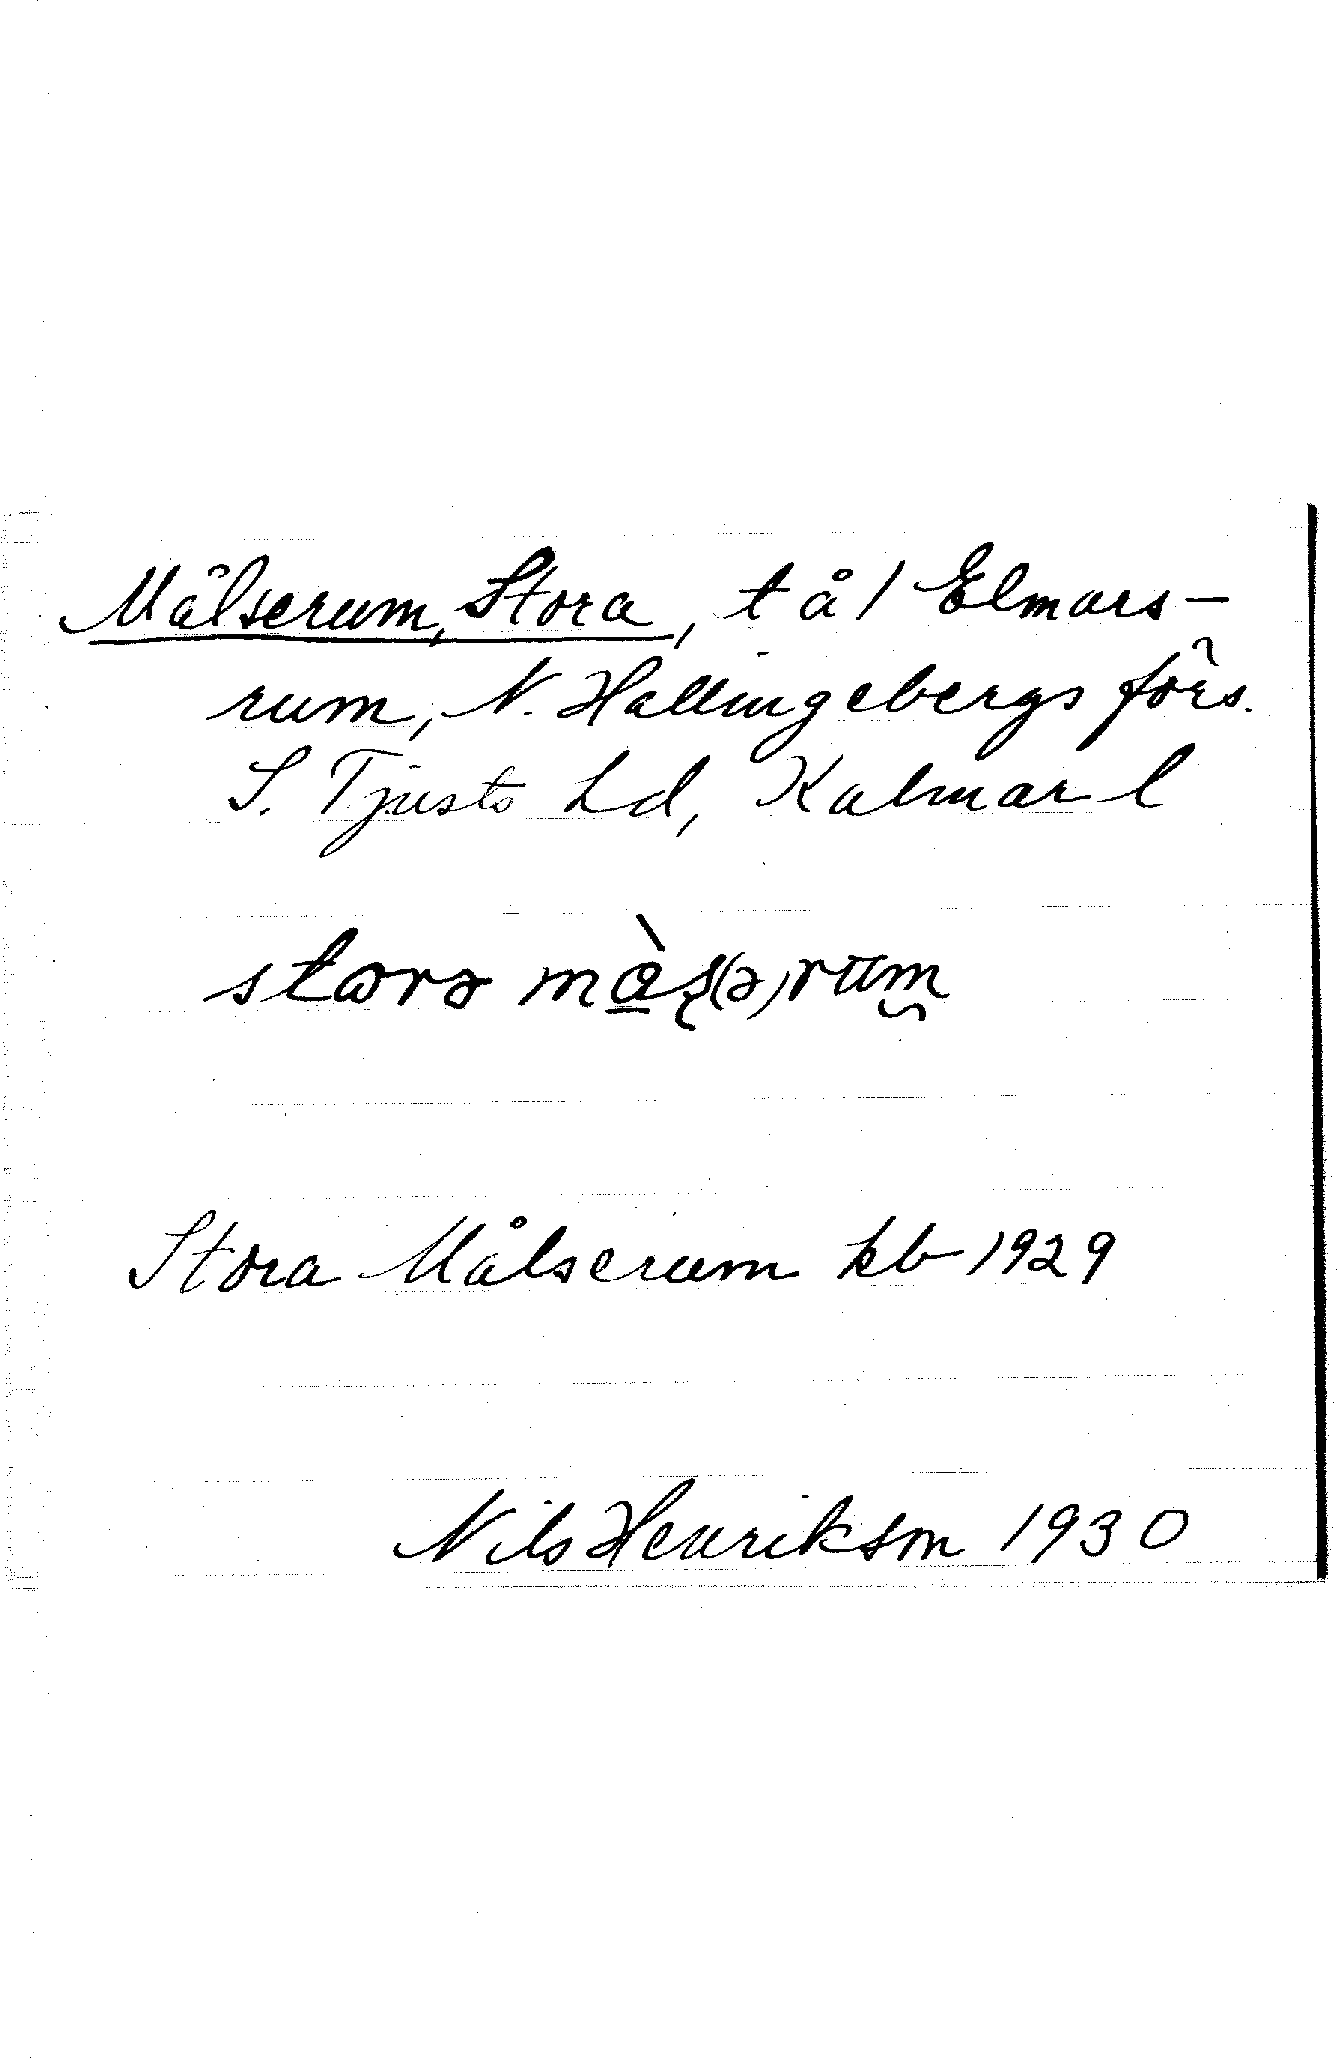 Målserum, Stora, t å 1 Elmars-
rum, N. Hallingebergs förs.
S. Tjusts hd, Kalmar l
storə mɑ̀ʂ(ə)rum
Stora Målserum kb 1929
Nils Henrikson 1930